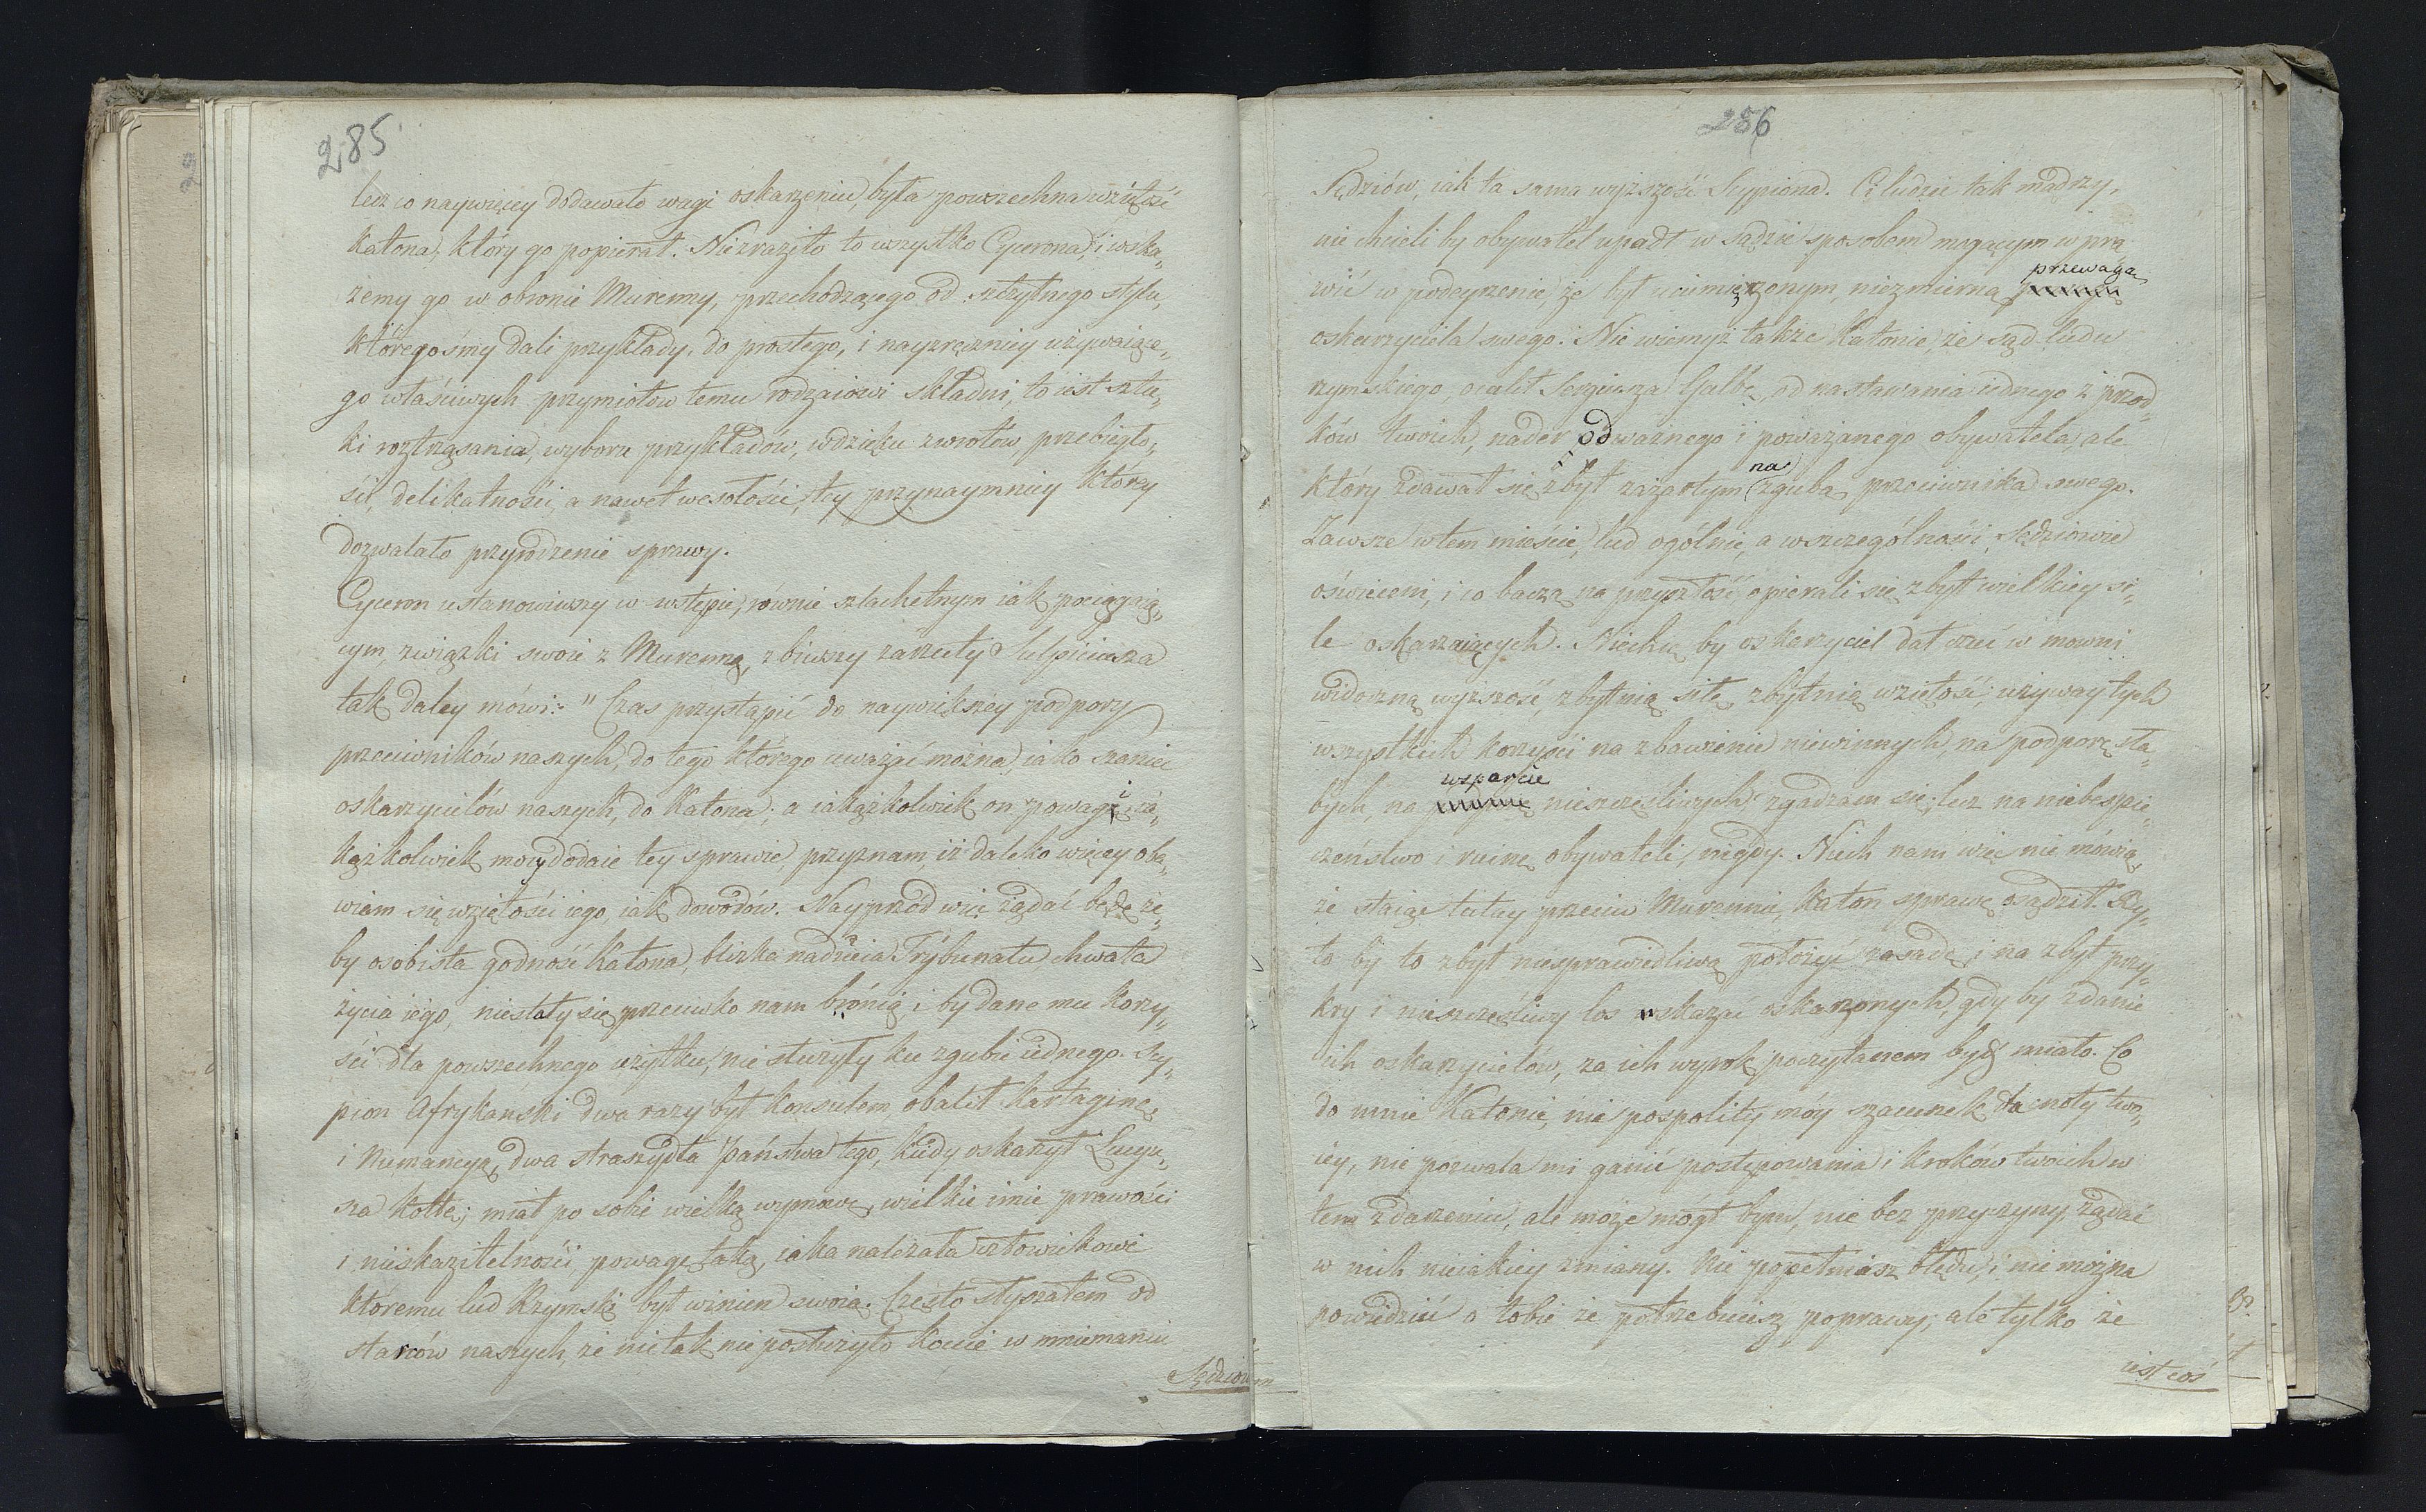 285
lecz co naywięcey dodawało wagi oskarżeniu, była powszechna wziętość
Katona, który go popierał. Niezraziło to wszystko Cycerona, i wska„
żemy go w obronie Mureny, przechodzącego od szczytnego stylu,
któregośmy dali przykłady, do prostego, i nayzręczniey używaiące„
go właściwych przymiotow temu rodzaiowi składni, to iest sztu„
ki roztrząsania, wyboru przykładów, wdzięku zwrotów, przebiegło„
ści, delikatności, a nawet wesołości, tey przynaymniey którey
dozwalało przyrodzenie sprawy.
Cyceron ustanowiwszy w wstępie, rownie szlachetnym iak pociągaią„
cym, związki swoie z Mureną, zbiwszy zarzuty Sulpiciusza
tak daley mówi: " Czas przystąpić do naywiększey podpory
przeciwników naszych, do tego którego uważać można, iako szaniec
oskarzycielów naszych, do Katona; a iakążkolwiek on powagę i ia„
kążkolwiek moc dodaie tey sprawie, przyznam iż daleko więcey oba„
wiam się wziętości iego, iak dowodów. Nayprzód więc żądać będę że„
by osobista godność Katona, blizka nadzieia Trybunatu, chwała
życia iego, niestały się przeciwko nam bronią i by dane mu korzy„
ści dla powszechnego użytku, nie służyły ku zgubie iednego. Scy„
pion Afrykanski dwa razy był Konsulem, obalił Kartaginę,
i Numancyą, dwa straszydła państwa tego, kiedy oskarżył Lucyu„
sza Kottę; miał po sobie wielką wymowę, wielkie imie prawości
i nieskazitelności, powagę taką, iaka należała człowiekowi
ktoremu lud Rzymski był winien swoią. Często słyszałem od
starców naszych, że nic tak nie posłużyło Kocie w mniemaniu
Sędziow
286
Sędziów, iak ta sama wyższość Scypiona. Ci ludzie tak mądrzy,
nie chcieli by obywatel upadł w sądzie sposobem mogącym w pra
wić w podeyrzenie, że był uciemiężonym, niezmierną przewagą
oskarzyciela swego. Nie wiemyż także Katonie, że sąd ludu
rzymskiego, ocalił Sergiusza Galbę, od nastawania iednego z przod„
ków twoich, nader odważnego i poważanego obywatela, ale
który zdawał się zbyt zażartym na zgubą przeciwnika swego.
Zawsze w tem mieście, lud ogólnie, a wszczególności, Sędziowie
oświeceni, i co baczą na przyszłość, opierali się zbyt wielkiey si„
le oskarzaiących. Niechcę by oskarzyciel dał czuć w mowni
widoczną wyższość, zbytnią siłę, zbytnią wziętość; używay tych
wszystkich korzyści na zbawienie niewinnych, na podporę sła„
bych, na wsparcie nieszczęśliwych, zgadzam się; lecz na niebezpie„
czeństwo i ruinę obywateli, nigdy. Niech nam więc nie mówią,
że staiąc tutey przeciw Murennie, Katon sprawę osądził. By„
ło by to zbyt niesprawiedliwą położyć zasadę, i na zbyt przy„
kry i nieszczęśliwy los wskazać oskarżonych, gdy by zdanie
ich oskarzycielów, za ich wyrok poczytanem być miało. Co
do mnie Katonie, nie pospolity móy szacunek dla cnoty two„
iey, nie pozwala mi ganić postępowania i kroków twoich w
tem zdarzeniu, ale może mógł bym, nie bez przyczyny, żądać
w nich nieiakiey zmiany. Nie popełniasz błędu, i nie można
powiedzieć o tobie że potrzebuiesz poprawy; ale tylko że
iest coś